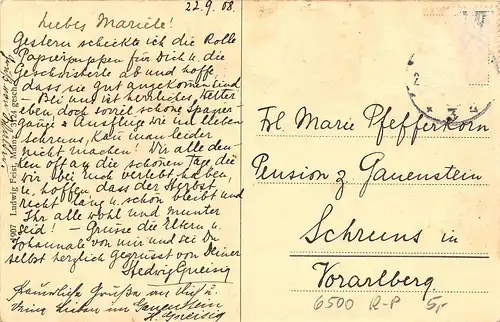 22.9.08.
Liebes Mariele!
Gestern schickte ich die Rolle
Papierpuppen für Dich u. die
Geschwister ab und hoffe,
dass sie gut angekommen sind
– Bei uns ist herrliches Wetter
eben, doch soviel schöne Spazier-
gänge & Ausflüge wie im lieben
Schruns, kann man leider
nicht machen! Wir alle den-
ken oft an die schönen Tage die
wir bei euch verlebt haben,
u. hoffen dass der Herbst
recht lang u. schön bleibt und
Ihr alle wohl und munter
seid! – Grüsse die Eltern u.
Johannale von mir und sei Du
selbst herzlich gegrüsst von Deiner
Hedwig Gneisig
Freundliche Grüße an Dich u.
Deine Lieben im Gauenstein
Gneisig
1907 Ludwig Feist, Mainz
Frl. Marie Pfefferkorn
Pension z Gauenstein
Schruns in
Vorarlberg
6500 R-P 5,-